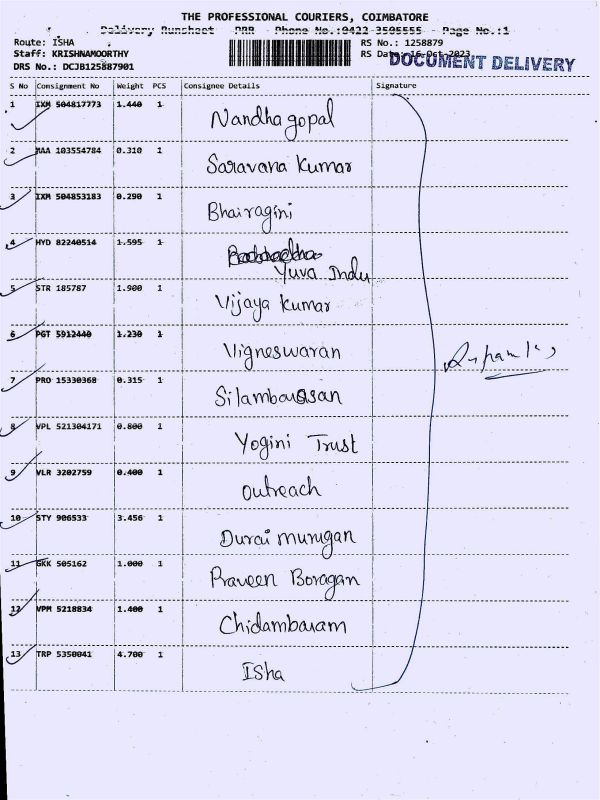 THE PROFESSIONAL COURIERS, COIMBATORE
Delivery Runsheet DRR - Phone No.:0422-3505555 - Page No.:1
Route: ISHA
RS No.: 1258879
Staff: KRISHNAMOORTHY
RS Date: 16-Oct-2023
DOCUMENT DELIVERY
DRS No.: DCJB125887901
S No Consignment No Weight PCS Consignee Details Signature
1 IXM 504817773 1.440 1 Nandha gopal
2 MAA 103554784 0.310 1 Saravana Kumar
3 IXM 504853183 0.290 1 Bhairagini
4 HYD 82240514 1.595 1 Yuva Indu
5 STR 185787 1.900 1 Vijaya kumar
6 PGT 5912440 1.230 1 Vigneswaran
7 PRO 15330368 0.315 1 Silambarasan
8 VPL 521304171 0.800 1 Yogini Trust
9 VLR 3202759 0.400 1 outreach
10 STY 906533 3.456 1 Durai murugan
11 GKK 505162 1.000 1 Praveen Boragan
12 VPM 5218834 1.400 1 Chidambaram
13 TRP 5350041 4.700 1 Isha